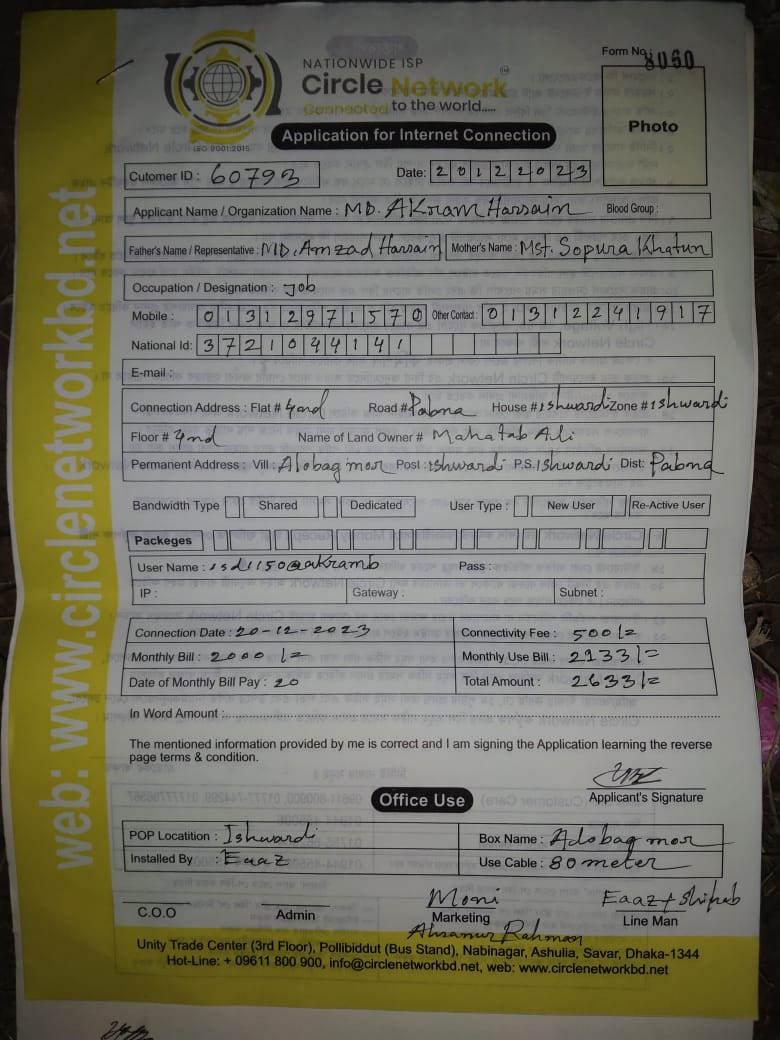 NATIONWIDE ISP
Circle Network
Connected to the world.....
ISO 9001:2015
Form No : 8060
Photo
Application for Internet Connection
Cutomer ID : 60793 Date: 20122023
Applicant Name / Organization Name : MD. AKram Harsain Blood Group :
Father's Name / Representative : MD. Amzad Harsain Mother's Name : Mst. Sopura Khatun
Occupation / Designation : Job
Mobile : 01312971570 Other Contact : 01312241917
National Id: 3721044141
E-mail :
Connection Address : Flat # 4nd Road # Pabna House # ishwardi Zone # ishwardi
Floor # 4nd Name of Land Owner # Mahatab Ali
Permanent Address : Vill : Alobag mor Post : ishwardi P.S. Ishwardi Dist: Pabna
Bandwidth Type Shared Dedicated User Type : New User Re-Active User
Packeges
User Name : isd1150@akramb Pass :
IP : Gateway : Subnet :
Connection Date : 20-12-2023 Connectivity Fee : 500/=
Monthly Bill : 2000/= Monthly Use Bill : 2133/=
Date of Monthly Bill Pay : 20 Total Amount : 2633/=
In Word Amount :
The mentioned information provided by me is correct and I am signing the Application learning the reverse
page terms & condition.
Applicant's Signature
Office Use
POP Locatition : Ishwardi Box Name : Adobag mor
Installed By : Eaaz Use Cable : 80 meter
Moni Eaaz + Shihab
C.O.O Admin Marketing Line Man
Ahsanur Rahman
Unity Trade Center (3rd Floor), Pollibiddut (Bus Stand), Nabinagar, Ashulia, Savar, Dhaka-1344
Hot-Line: + 09611 800 900, info@circlenetworkbd.net, web: www.circlenetworkbd.net
web: www.circlenetworkbd.net